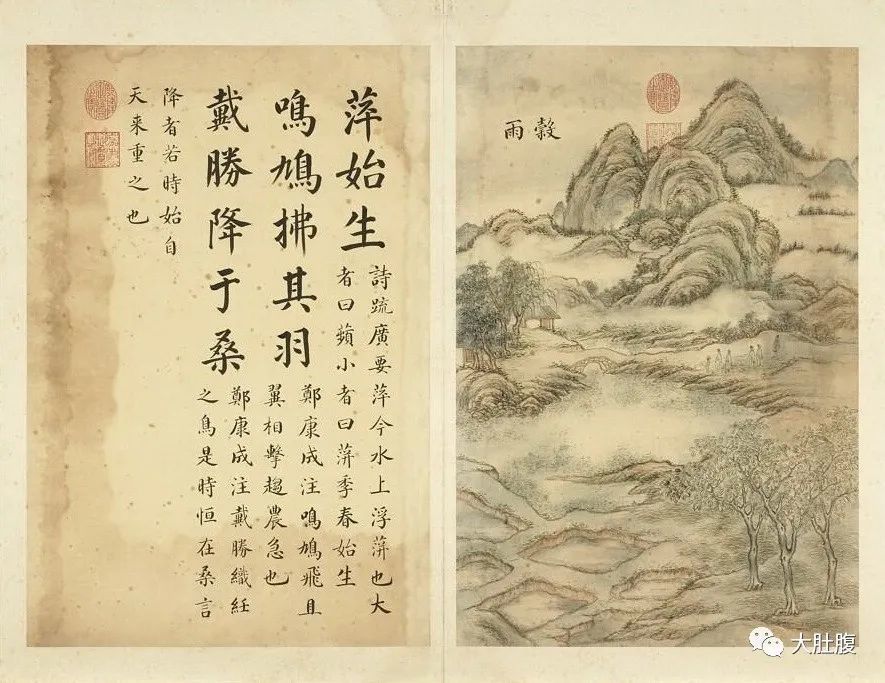 穀雨
萍始生
詩疏廣要萍今水上浮蓱也大
者曰蘋小者曰蓱季春始生
鳴鳩拂其羽
鄭康成注鳴鳩飛且
翼相擊趨農急也
戴勝降于桑
鄭康成注戴勝織紝
之鳥是時恒在桑言
降者若時始自
天来重之也
大肚腹